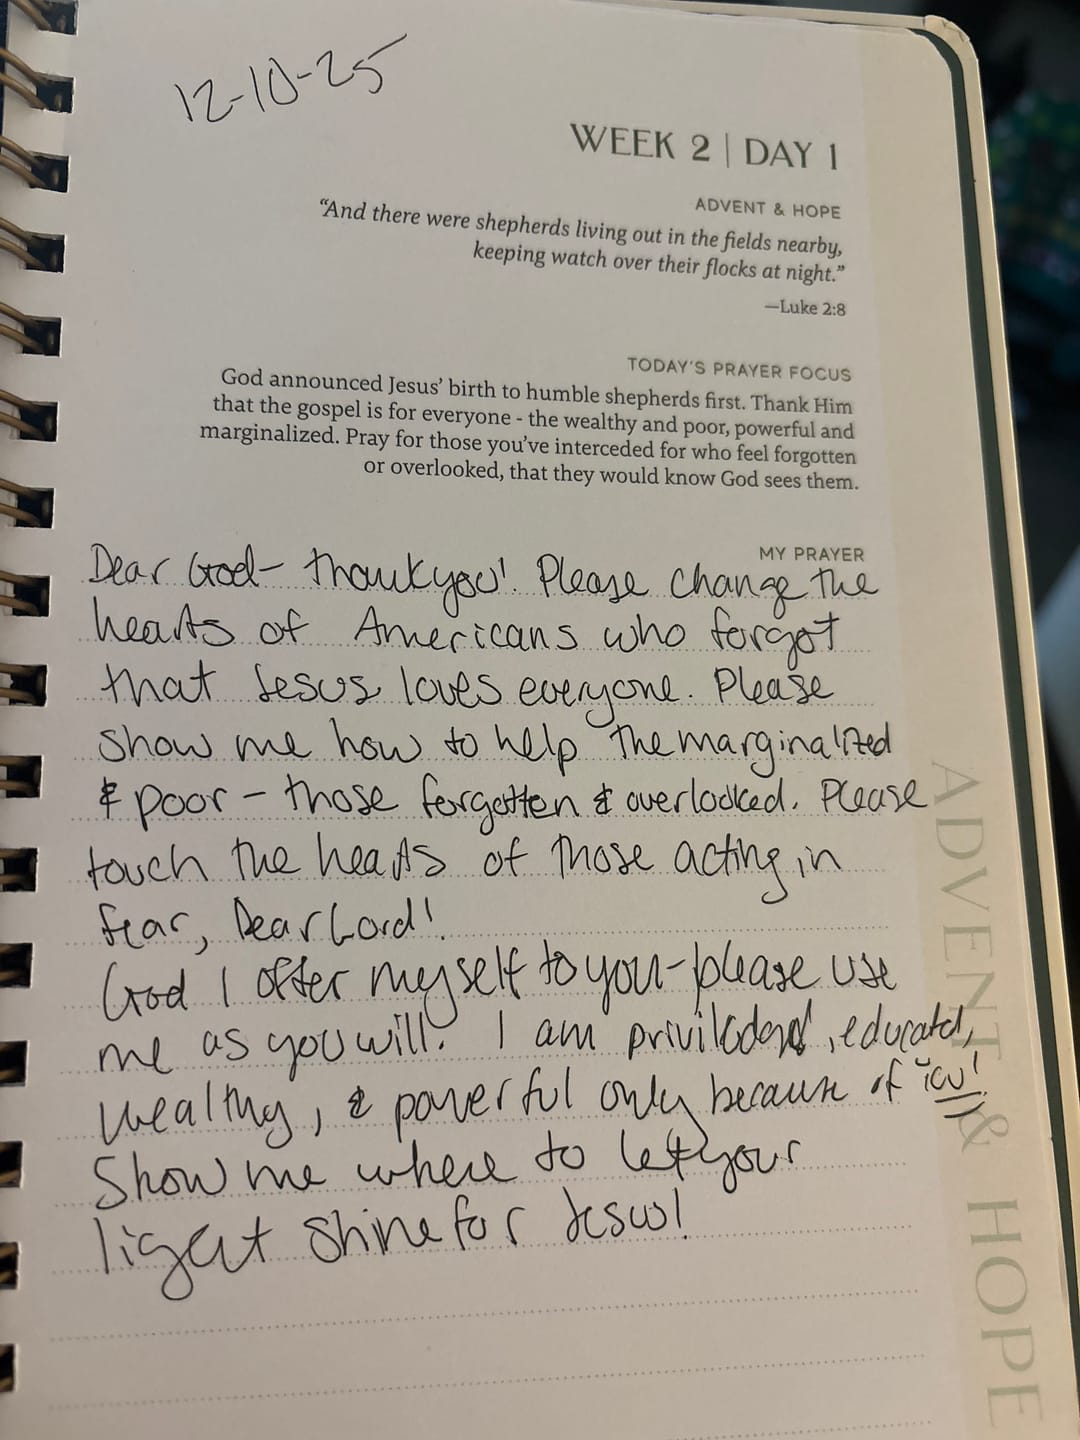 12-10-25
WEEK 2 | DAY 1
ADVENT & HOPE
“And there were shepherds living out in the fields nearby,
keeping watch over their flocks at night.”
—Luke 2:8
TODAY'S PRAYER FOCUS
God announced Jesus' birth to humble shepherds first. Thank Him
that the gospel is for everyone - the wealthy and poor, powerful and
marginalized. Pray for those you've interceded for who feel forgotten
or overlooked, that they would know God sees them.
MY PRAYER
Dear God- thank you! Please change the
hearts of Americans who forgot
that Jesus loves everyone. Please
show me how to help the marginalized
& poor - those forgotten & overlooked. Please
touch the hearts of those acting in
fear, Dear Lord!
God I offer myself to you-please use
me as you will. I am , educated,
wealthy, & powerful only because of
Show me where to let your
light shine for Jesus!
ADVENT & HOPE